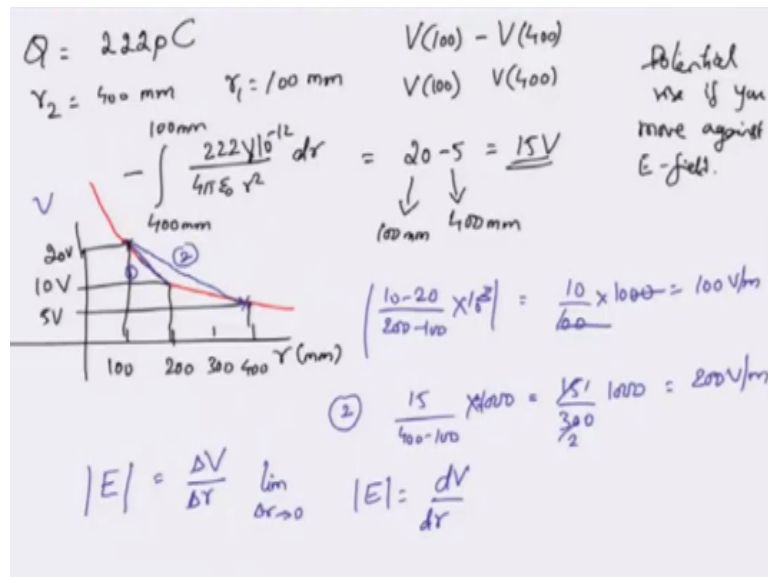 Q = 222pC
r₂ = 400 mm r₁ = 100 mm
V(100) - V(400)
V(100) V(400)
Potential
rise if you
move against
E-field.
- ∫ 100mm 400mm 222×10⁻¹² / 4πε₀ r² dr = 20 - 5 = 15V
100 mm 400mm
V
20V
10V
5V
① ②
100 200 300 400 r (mm)
| 10-20 / 200-100 × 10³ | = 10 / 100 × 1000 = 100 V/m
② 15 / 400-100 × 1000 = 15 / 300 1000 = 200 V/m
|E| = ΔV / Δr lim Δr→0 |E| = dV / dr